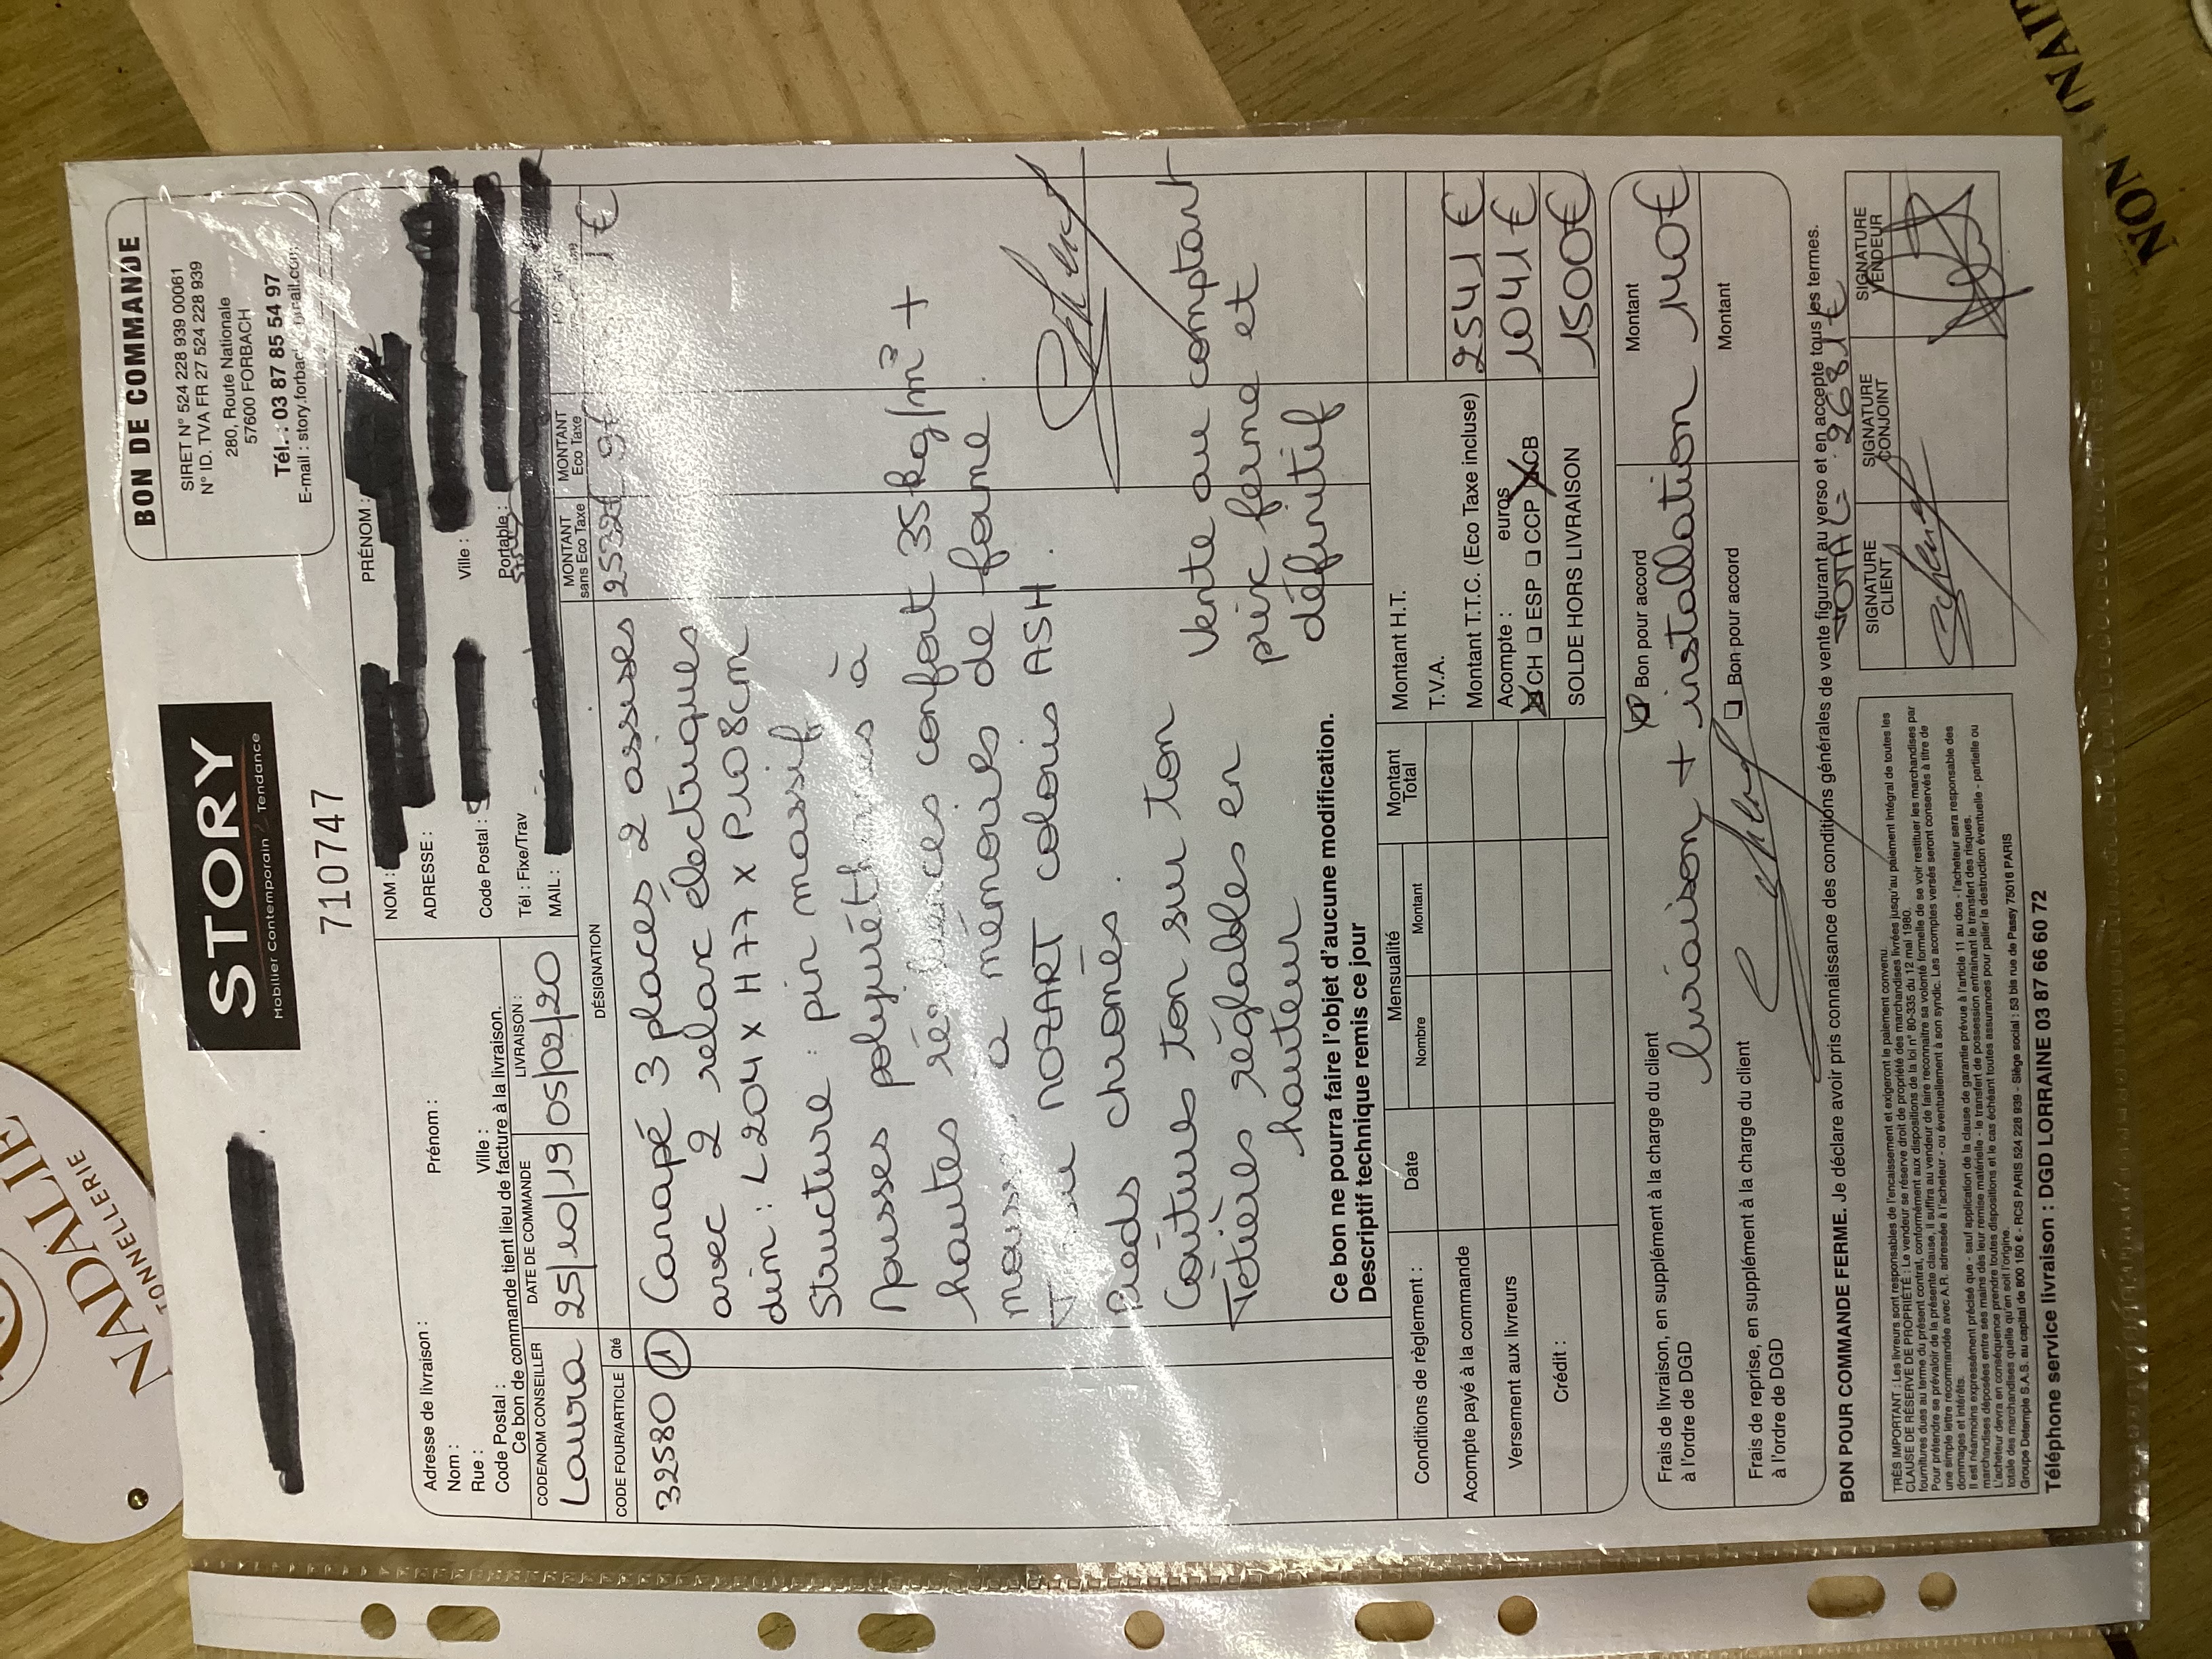 NADALIE
TONNELLERIE
NON
STORY
Mobilier Contemporain & Tendance
710747
BON DE COMMANDE
SIRET N° 524 228 939 00061
N° ID. TVA FR 27 524 228 939
280, Route Nationale
57600 FORBACH
Tél. : 03 87 85 54 97
Adresse de livraison :
Nom :
Prénom :
Rue :
Code Postal :
Ville :
Ce bon de commande tient lieu de facture à la livraison.
NOM :
PRÉNOM :
ADRESSE :
Code Postal :
Ville :
Tél : Fixe/Trav
Portable :
MAIL :
CODE/NOM CONSEILLER
DATE DE COMMANDE
LIVRAISON :
Laura 25/10/19 05/02/20
CODE FOUR/ARTICLE
Qté
DÉSIGNATION
MONTANT sans Eco Taxe
MONTANT Eco Taxe
32580 1 Canapé 3 places 2 assises 2532€ 9€
avec 2 relax électriques
dim : L204 x H77 x P108cm
Structure : pin massif
Mousses polyuréthannes à
hautes résiliences confort 35kg/m³ +
mousse à mémoires de forme.
Tissu MOZART colois ASH.
Pieds chromés.
Coutures ton sur ton
Tetières réglables en
hauteur
Vente au comptant
prix ferme et
définitif
Ce bon ne pourra faire l'objet d'aucune modification.
Descriptif technique remis ce jour
Conditions de règlement :
Date
Mensualité
Nombre
Montant
Montant Total
Acompte payé à la commande
Versement aux livreurs
Crédit :
Montant H.T.
T.V.A.
Montant T.T.C. (Eco Taxe incluse) 2541 €
Acompte : euros 1041 €
CH ESP CCP CB
SOLDE HORS LIVRAISON 1500€
Frais de livraison, en supplément à la charge du client
à l'ordre de DGD
Bon pour accord
Montant
livraison + installation 140€
Frais de reprise, en supplément à la charge du client
à l'ordre de DGD
Bon pour accord
Montant
BON POUR COMMANDE FERME. Je déclare avoir pris connaissance des conditions générales de vente figurant au verso et en accepte tous les termes.
TOTAL = 2681€
SIGNATURE CLIENT
SIGNATURE CONJOINT
SIGNATURE VENDEUR
TRÈS IMPORTANT : Les livreurs sont responsables de l'encaissement et exigeront le paiement convenu.
CLAUSE DE RÉSERVE DE PROPRIÉTÉ : Le vendeur se réserve droit de propriété des marchandises livrées jusqu'au paiement intégral de toutes les
fournitures dues au terme du présent contrat, conformément aux dispositions de la loi n° 80-335 du 12 mai 1980.
Pour prétendre se prévaloir de la présente clause, il suffira au vendeur de faire reconnaître sa volonté formelle de se voir restituer les marchandises par
une simple lettre recommandée avec A.R. adressée à l'acheteur - ou éventuellement à son syndic. Les acomptes versés seront conservés à titre de
dommages et intérêts.
Il est néanmoins expressément précisé que - sauf application de la clause de garantie prévue à l'article 11 au dos - l'acheteur sera responsable des
marchandises déposées entre ses mains dès leur remise matérielle - le transfert de possession entraînant le transfert des risques.
L'acheteur devra en conséquence prendre toutes dispositions et le cas échéant toutes assurances pour palier la destruction éventuelle - partielle ou
totale des marchandises quelle qu'en soit l'origine.
Groupe Detemple S.A.S. au capital de 800 150 € - RCS PARIS 524 228 939 - Siège social : 53 bis rue de Passy 75016 PARIS
Téléphone service livraison : DGD LORRAINE 03 87 66 60 72